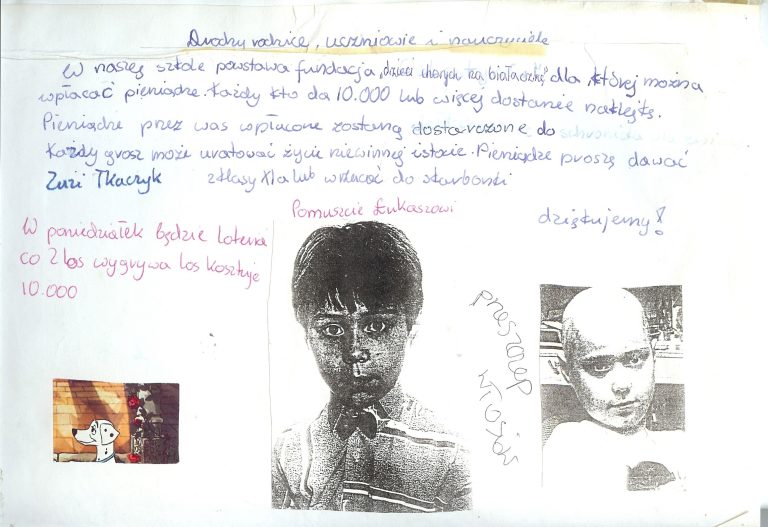 Drodzy rodzice, uczniowie i nauczyciele
W naszej szkole powstała fundacja „dzieci chorych na białaczkę" dla której można
wpłacać pieniądze. Każdy kto da 10.000 lub więcej dostanie naklejkę.
Pieniądze przez was wpłacone zostaną dostarczone do schroniska
Każdy grosz może uratować życie niewinnej istocie. Pieniądze proszę dawać
Zuzi Tkaczyk z klasy XIa lub wrzucać do skarbonki
Pomuszcie Łukaszowi
dziękujemy!
W poniedziałek będzie loteria
co 2 los wygrywa los kosztuje
10.000
przeszczep
włosów